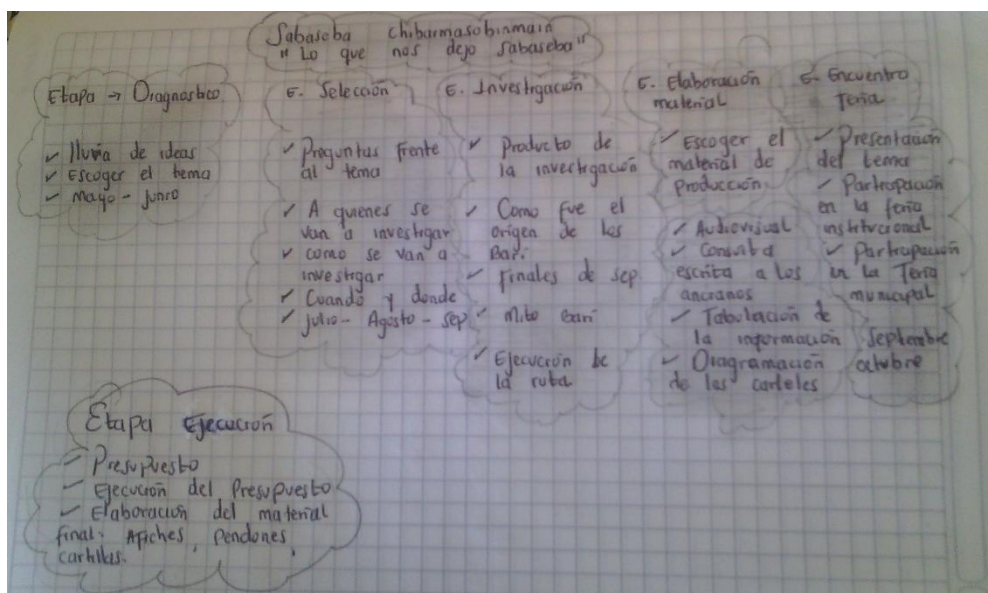 Sabaseba chibarmasobinmain
"Lo que nos dejo Sabaseba"
Etapa → Diagnostico
✓ lluvia de ideas
✓ Escoger el tema
✓ mayo - junio
E. Selección
✓ Preguntas frente
al tema
✓ A quienes se
van a investigar
✓ como se van a
investigar
✓ Cuando y donde
✓ julio - Agosto - sep
E. Investigación
✓ Producto de
la investigación
✓ Como fue el
origen de los
Bari
✓ finales de sep
✓ Mito Bari
✓ Ejecución de
la ruta
E. Elaboración
material
✓ Escoger el
material de
Producción.
✓ Audiovisual
✓ Consulta
escrita a los
ancianos
✓ Tabulación de
la información
✓ Diagramación
de los carteles
E. Encuentro
Feria
✓ Presentación
del tema
✓ Participación
en la feria
institucional
✓ Participación
en la Feria
municipal
Septiembre
octubre
Etapa Ejecución
✓ Presupuesto
✓ Ejecución del Presupuesto
✓ Elaboración del material
final: Afiches, Pendones,
cartillas.